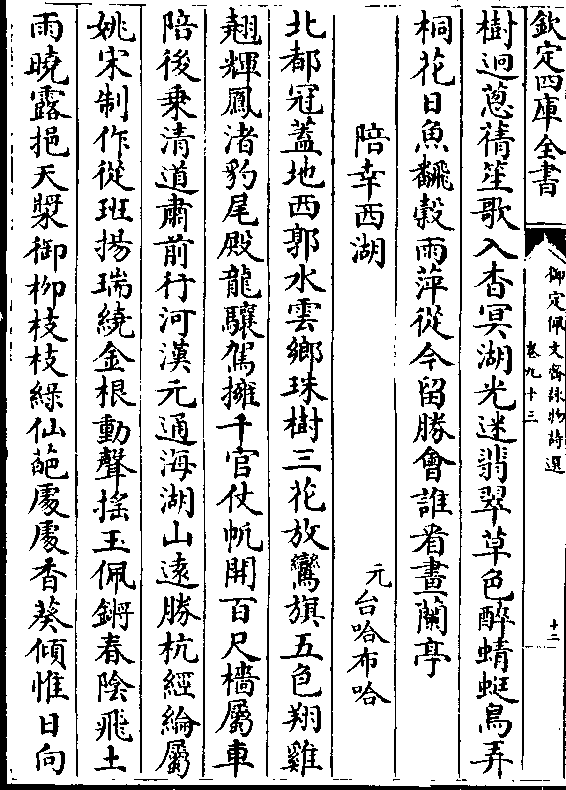 欽定四庫全書
御定佩文齋詠物詩選
卷九十三
十二
樹迥蔥蒨笙歌入杳冥湖光迷翡翠草色醉蜻蜓鳥弄
桐花日魚翻榖雨萍從今留勝會誰看畫蘭亭
陪幸西湖
元台哈布哈
北都冠蓋地西郭水雲鄉珠樹三花放鸞旗五色翔雞
翹輝鳳渚豹尾殿龍驤駕擁千官仗帆開百尺檣屬車
陪後乗清道肅前行河漢元通海湖山遠勝杭經綸屬
姚宋制作從班揚瑞繞金根動聲摇玉佩鏘春陰飛土
雨曉露挹天漿御柳枝枝緑仙葩處處香葵傾惟日向